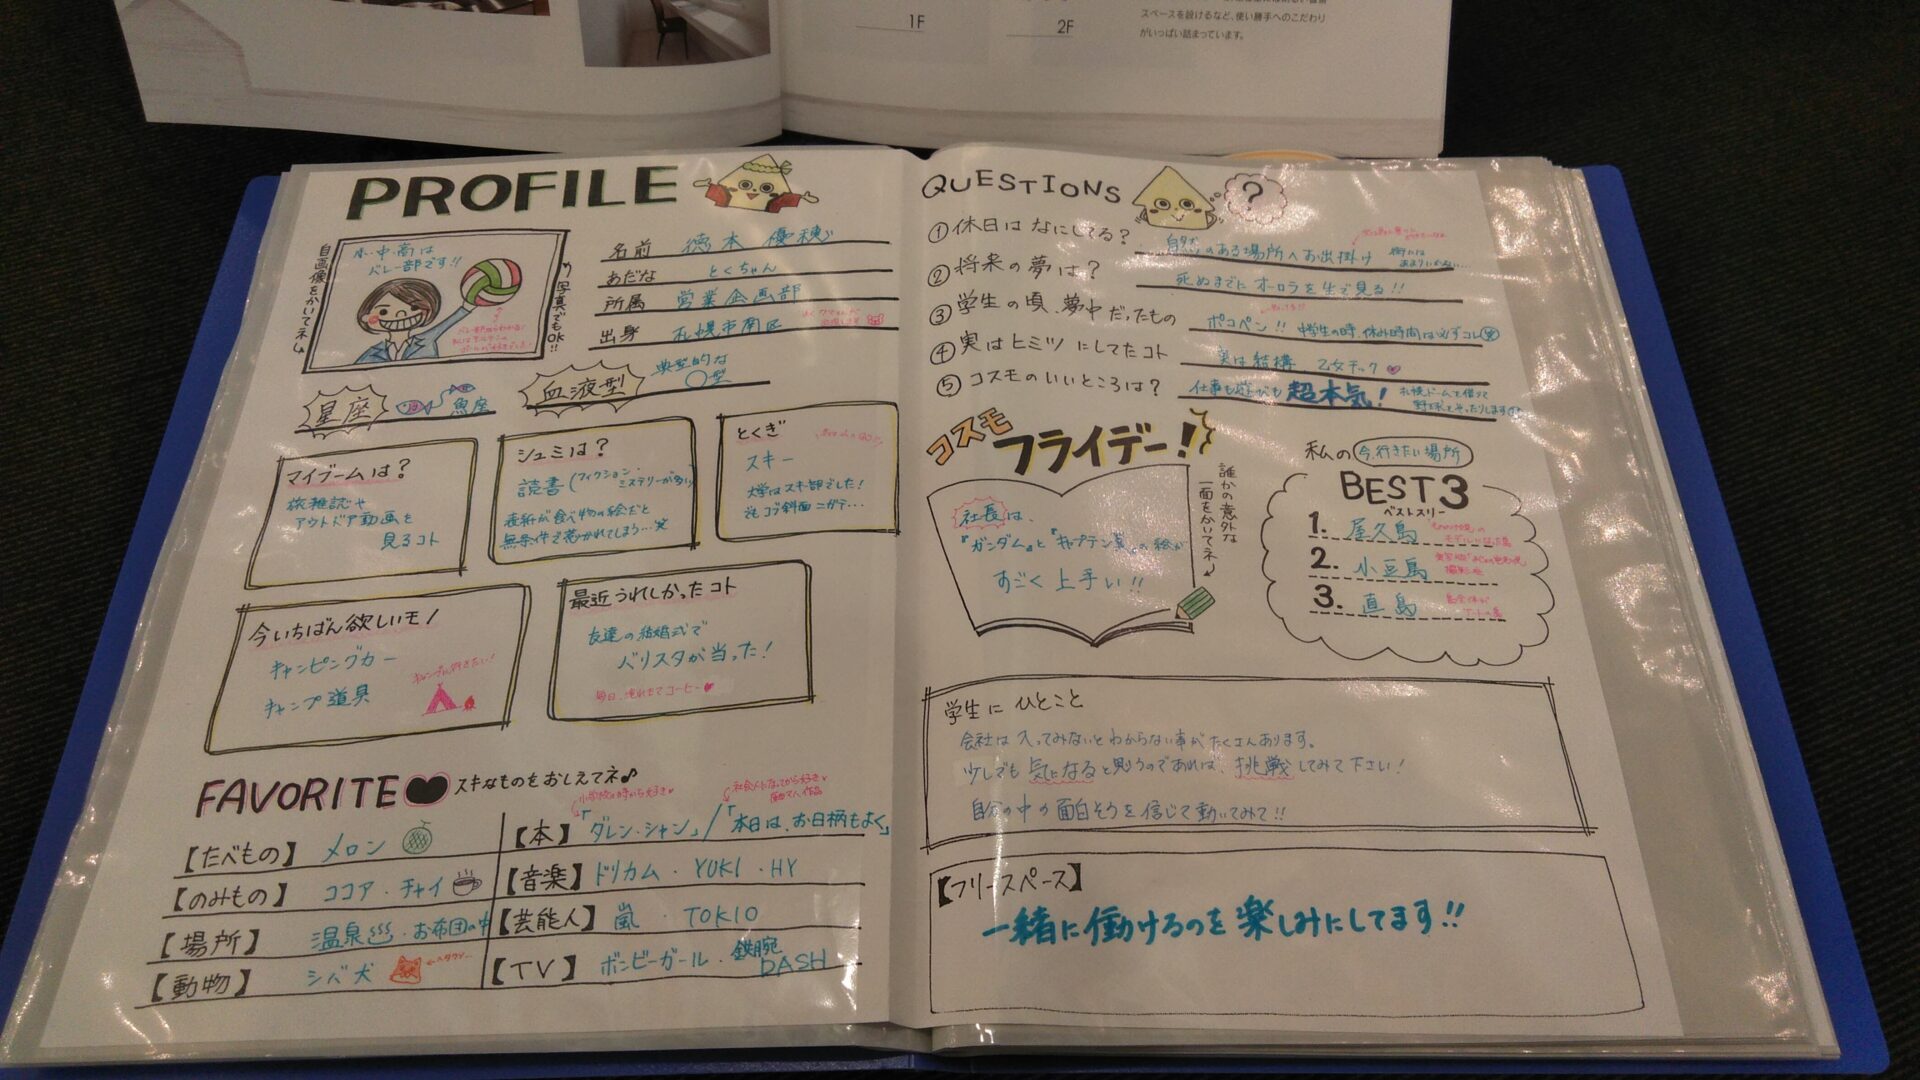 1F
2F
スペースを設けるなど、使い勝手へのこだわり
がいっぱい詰まっています。
PROFILE
自画像をかいてネ
写真でもOK!!
小・中・高は
バレー部です!!
名前 徳本 優穂
あだな とくちゃん
所属 営業企画部
出身 札幌市南区
星座 魚座
血液型 典型的な
○型
マイブームは?
旅雑誌や
アウトドア動画を
見るコト
シュミは?
読書(フィクション・
ミステリーが多い)
表紙が食べ物の絵だと
無条件で惹かれてしまう…笑
とくぎ
スキー
大学はスキー部でした!
でもコブ斜面ニガテ…
今いちばん欲しいモノ
キャンピングカー
キャンプ道具
キャンプに行きたい!
最近うれしかったコト
友達の結婚式で
バリスタが当った!
毎日、淹れたてコーヒー♥
FAVORITE♥スキなものをおしえてネ♪
小学校の時から好き♥
社会人になってから好き♥
【たべもの】 メロン
【のみもの】 ココア・チャイ
【場所】 温泉♨・お布団の中
【動物】 シバ犬
【本】「ダレン・シャン」/「本日は、お日柄もよく」
【音楽】ドリカム・YUKI・HY
【芸能人】嵐・TOKIO
【TV】ボンビーガール・鉄腕
DASH
QUESTIONS
?
①休日はなにしてる? 自然のある場所へお出掛け
②将来の夢は? 死ぬまでにオーロラを生で見る!!
③学生の頃、夢中だったもの ポコペン!! 中学生の時、休み時間は必ずコレ笑
④実はヒミツにしてたコト 実は結構 乙女チック♥
⑤コスモのいいところは? 仕事も遊びも超本気! 札幌ドームを借りて
野球をしたりします
コスモ
フライデー!
誰かの意外な
一面をかいてネ!
社長は、
『ガンダム』と『キャプテン翼』の絵が
すごく上手い!!
私の 今、行きたい場所
BEST3
ベストスリー
1. 屋久島
2. 小豆島
3. 直島
学生にひとこと
会社は入ってみないとわからない事がたくさんあります。
少しでも気になると思うのであれば、挑戦してみて下さい!
自分の中の面白そうを信じて動いてみて!!
【フリースペース】
一緒に働けるのを楽しみにしてます!!